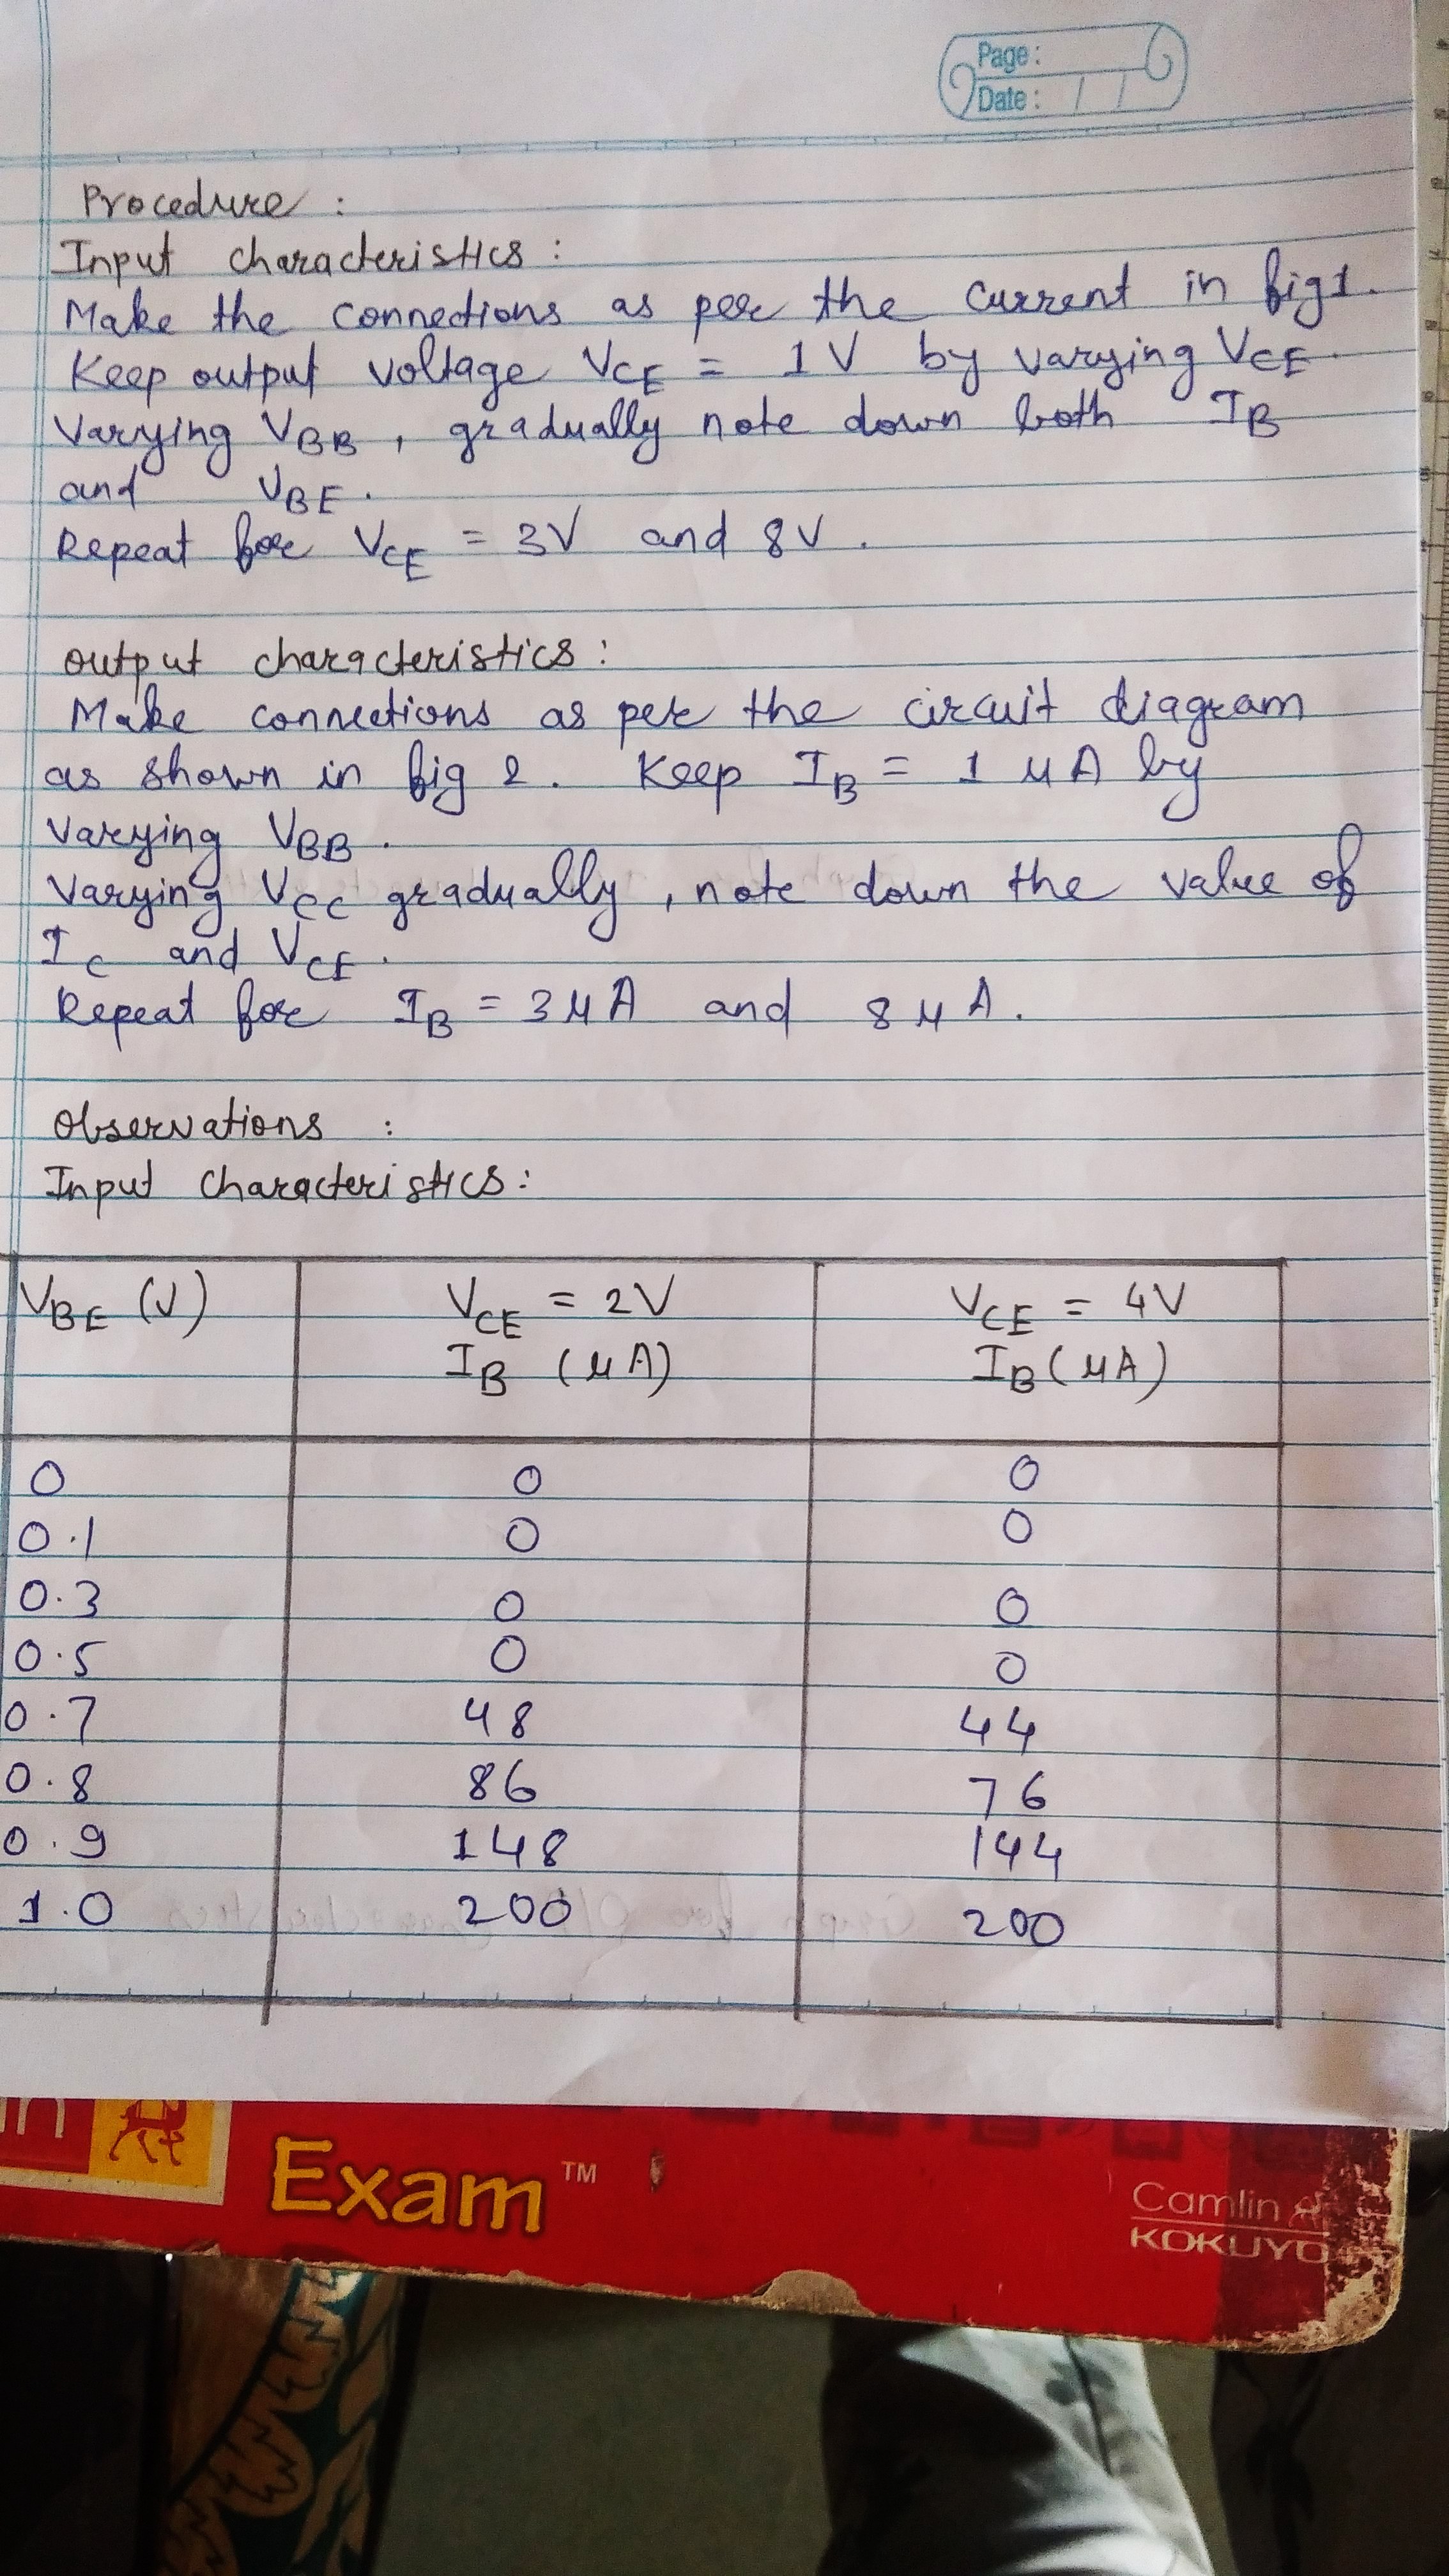 Page:
Date: / /
Procedure :
Input characteristics :
Make the connections as per the current in fig 1.
Keep output voltage VCE = 1V by varying VCE.
Varying VBB, gradually note down both IB
and VBE.
Repeat for VCE = 3V and 8V.
output characteristics :
Make connections as per the circuit diagram
as shown in fig 2. Keep IB = 1 μA by
varying VBB.
Varying VCC gradually, note down the value of
IC and VCE.
Repeat for IB = 3 μA and 8 μA.
Observations :
Input characteristics :
VBE (V) VCE = 2V VCE = 4V
IB (μA) IB (μA)
0 0 0
0.1 0 0
0.3 0 0
0.5 0 0
0.7 48 44
0.8 86 76
0.9 148 144
1.0 200 200
Exam TM
Camlin
KOKUYO